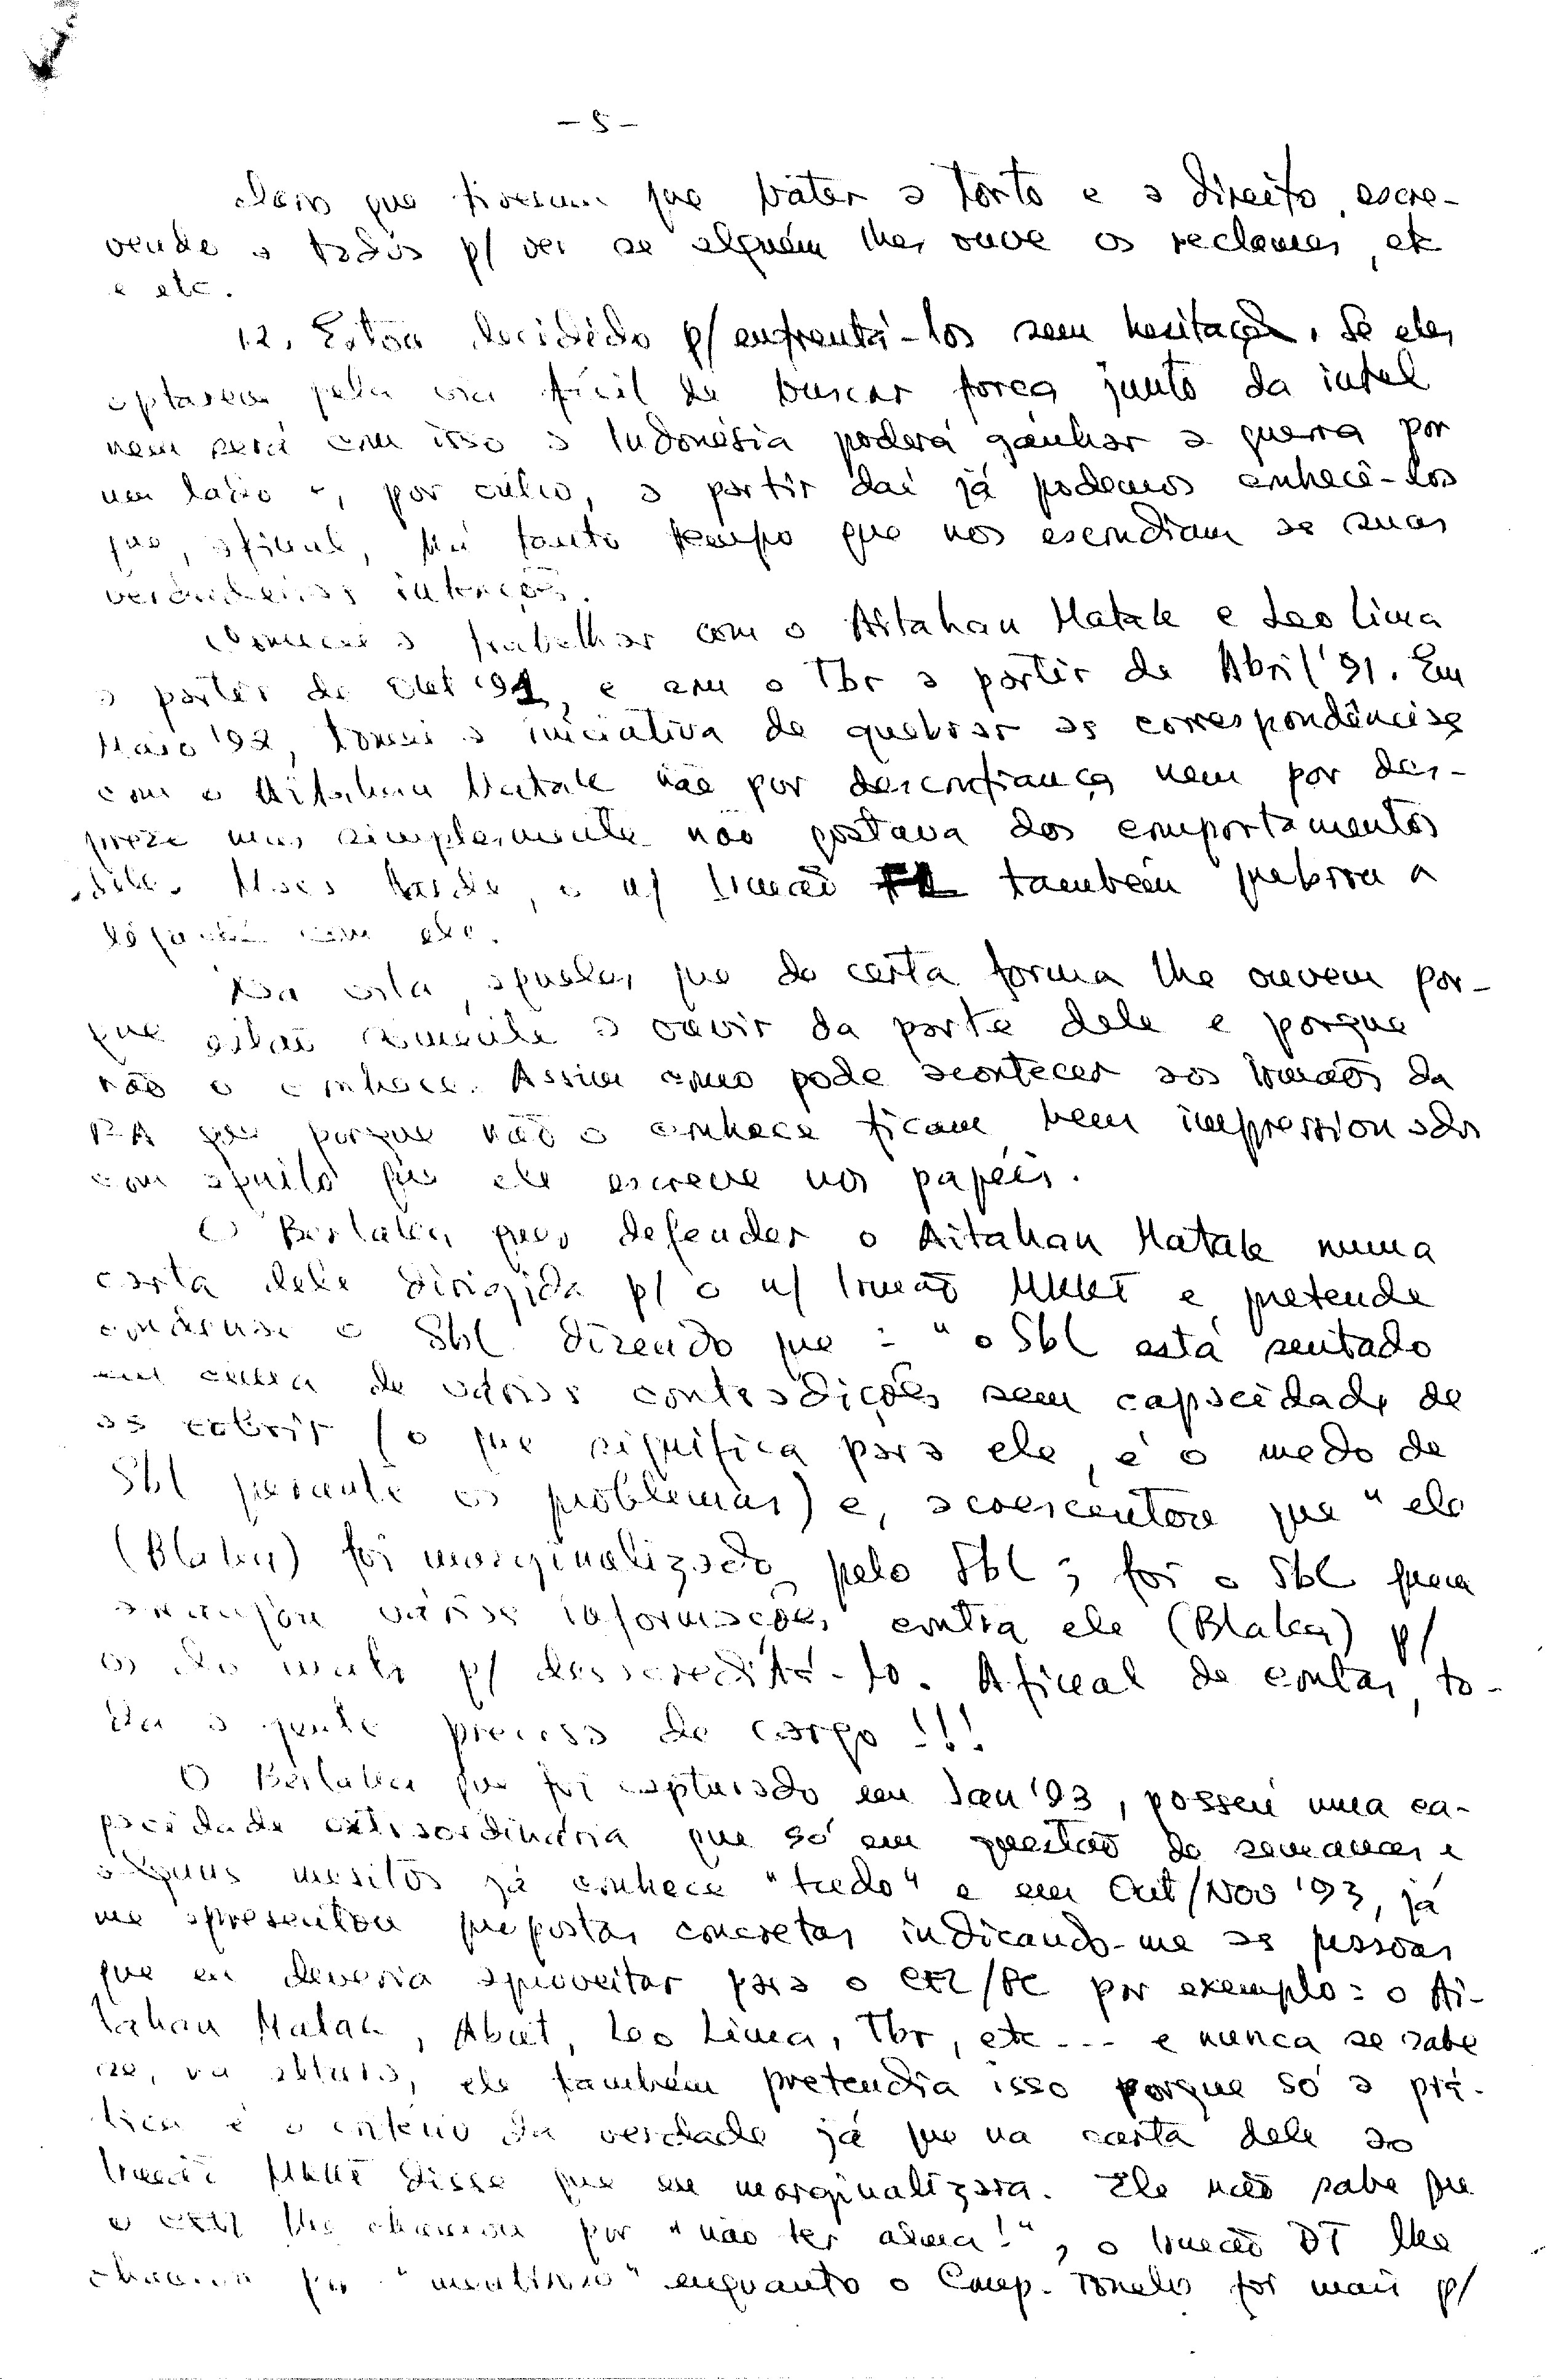 - 5 -
que tivessem que bater a torto e a direito, escre-
vendo a todos p/ ver se alguém lhes ouve os reclames, etc
e etc.
12. Estou decidido p/ enfrentá-los sem hesitação. Se eles
optarem pela via fácil de buscar força junto da intel
nem será com isso a Indonésia poderá ganhar a guerra por
um lado e, por outro, a partir daí já podemos conhecê-los
que, afinal, há tanto tempo que nos escondiam as suas
verdadeiras intenções.
Comecei a trabalhar com o Aitahan Matak e Leo Lima
a partir de 91, e com o Tbr a partir de Abril '91. Em
Maio '92, tomei a iniciativa de quebrar as correspondências
com o Aitahan Matak não por desconfiança nem por des-
prezo mas simplesmente não gostava dos comportamentos
dele. Mais tarde, o n/ Irmão também quebrou a
ligação com ele.
aqueles que de certa forma lhe ouvem por-
que estão somente a ouvir da parte dele e porque
não o conhece. Assim como pode acontecer aos Irmãos da
porque não o conhece ficam bem impressionados
com aquilo que ele escreve nos papéis.
O quis defender o Aitahan Matak numa
carta dele dirigida p/ o n/ Irmão e pretende
o Sbl dizendo que: "o Sbl está sentado
em cima de várias contradições sem capacidade de
as cobrir (o que significa para ele, é o medo de
Sbl perante os problemas) e, acrescentou que "ele
(Blaku) foi marginalizado pelo Sbl; foi o Sbl quem
arranjou várias informações contra ele (Blaku) p/
os do mato p/ dessacreditá-lo. Afinal de contas, to-
da a gente precisa de cargo!!!
O que foi capturado em Jan '93, possui uma ca-
pacidade extraordinária que só em questão de semanas e
alguns mesitos já conhece "tudo" e em Out/Nov '93, já
me apresentou propostas concretas indicando-me as pessoas
que eu deveria aproveitar para o por exemplo: o Ai-
tahan Matak, Leo Lima, Tbr, etc... e nunca se sabe
se, na altura, ele também pretendia isso porque só a prá-
tica é o critério da verdade já que na carta dele ao
Irmão disse que eu marginalizara. Ele não sabe que
o lhe chamou por "não ter alma!", o Irmão DT lhe
chamou por "mentiroso" enquanto o Comp. foi mais p/